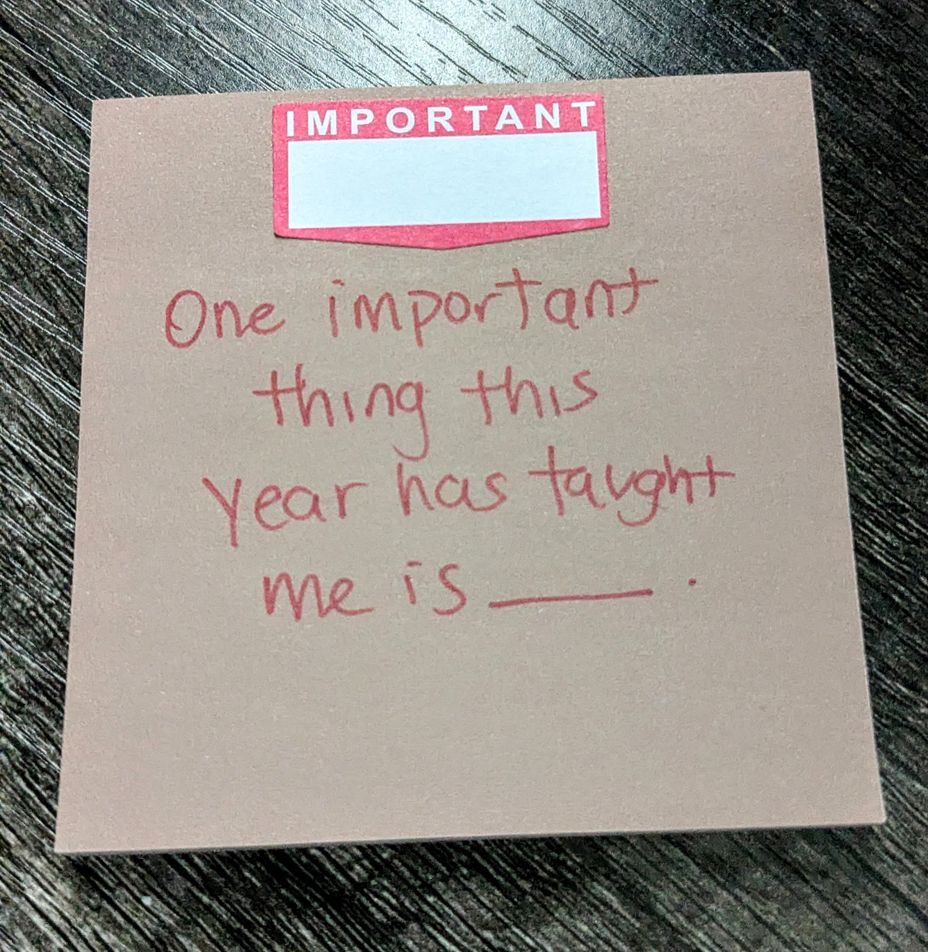 IMPORTANT
One important
thing this
year has taught
me is ____.